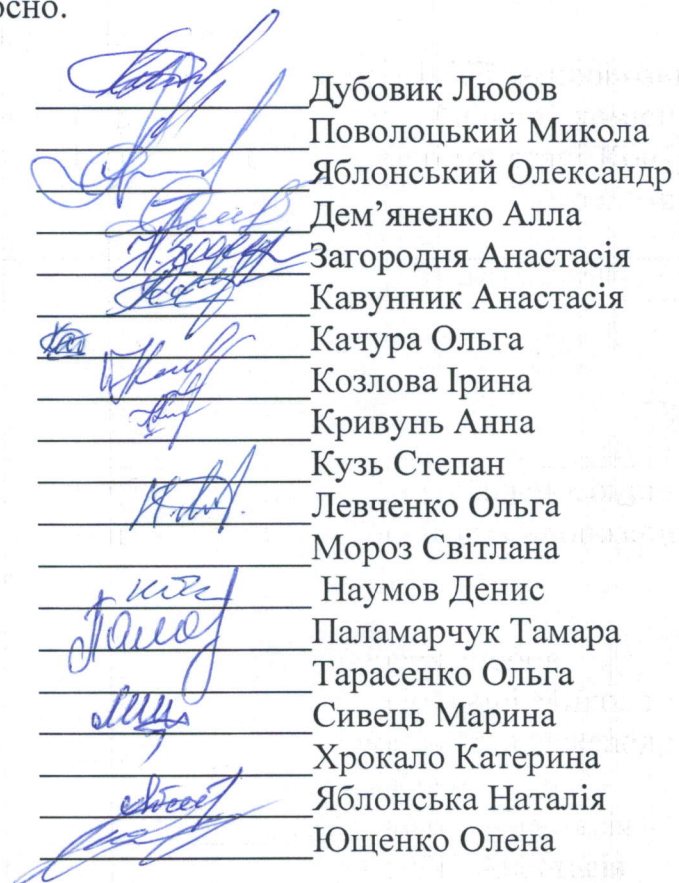 осно.
Дубовик Любов
Поволоцький Микола
Яблонський Олександр
Дем’яненко Алла
Загородня Анастасія
Кавунник Анастасія
Качура Ольга
Козлова Ірина
Кривунь Анна
Кузь Степан
Левченко Ольга
Мороз Світлана
Наумов Денис
Паламарчук Тамара
Тарасенко Ольга
Сивець Марина
Хрокало Катерина
Яблонська Наталія
Ющенко Олена